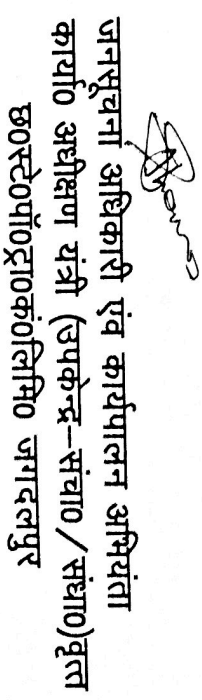 जनसूचना अधिकारी एंव कार्यपालन अभियंता
कार्या0 अधीक्षण यंत्री (उपकेन्द्र–संचा0 / संधा0)वृत्त
छ0स्टे0पॉ0ट्रा0कं0लिमि0 जगदलपुर